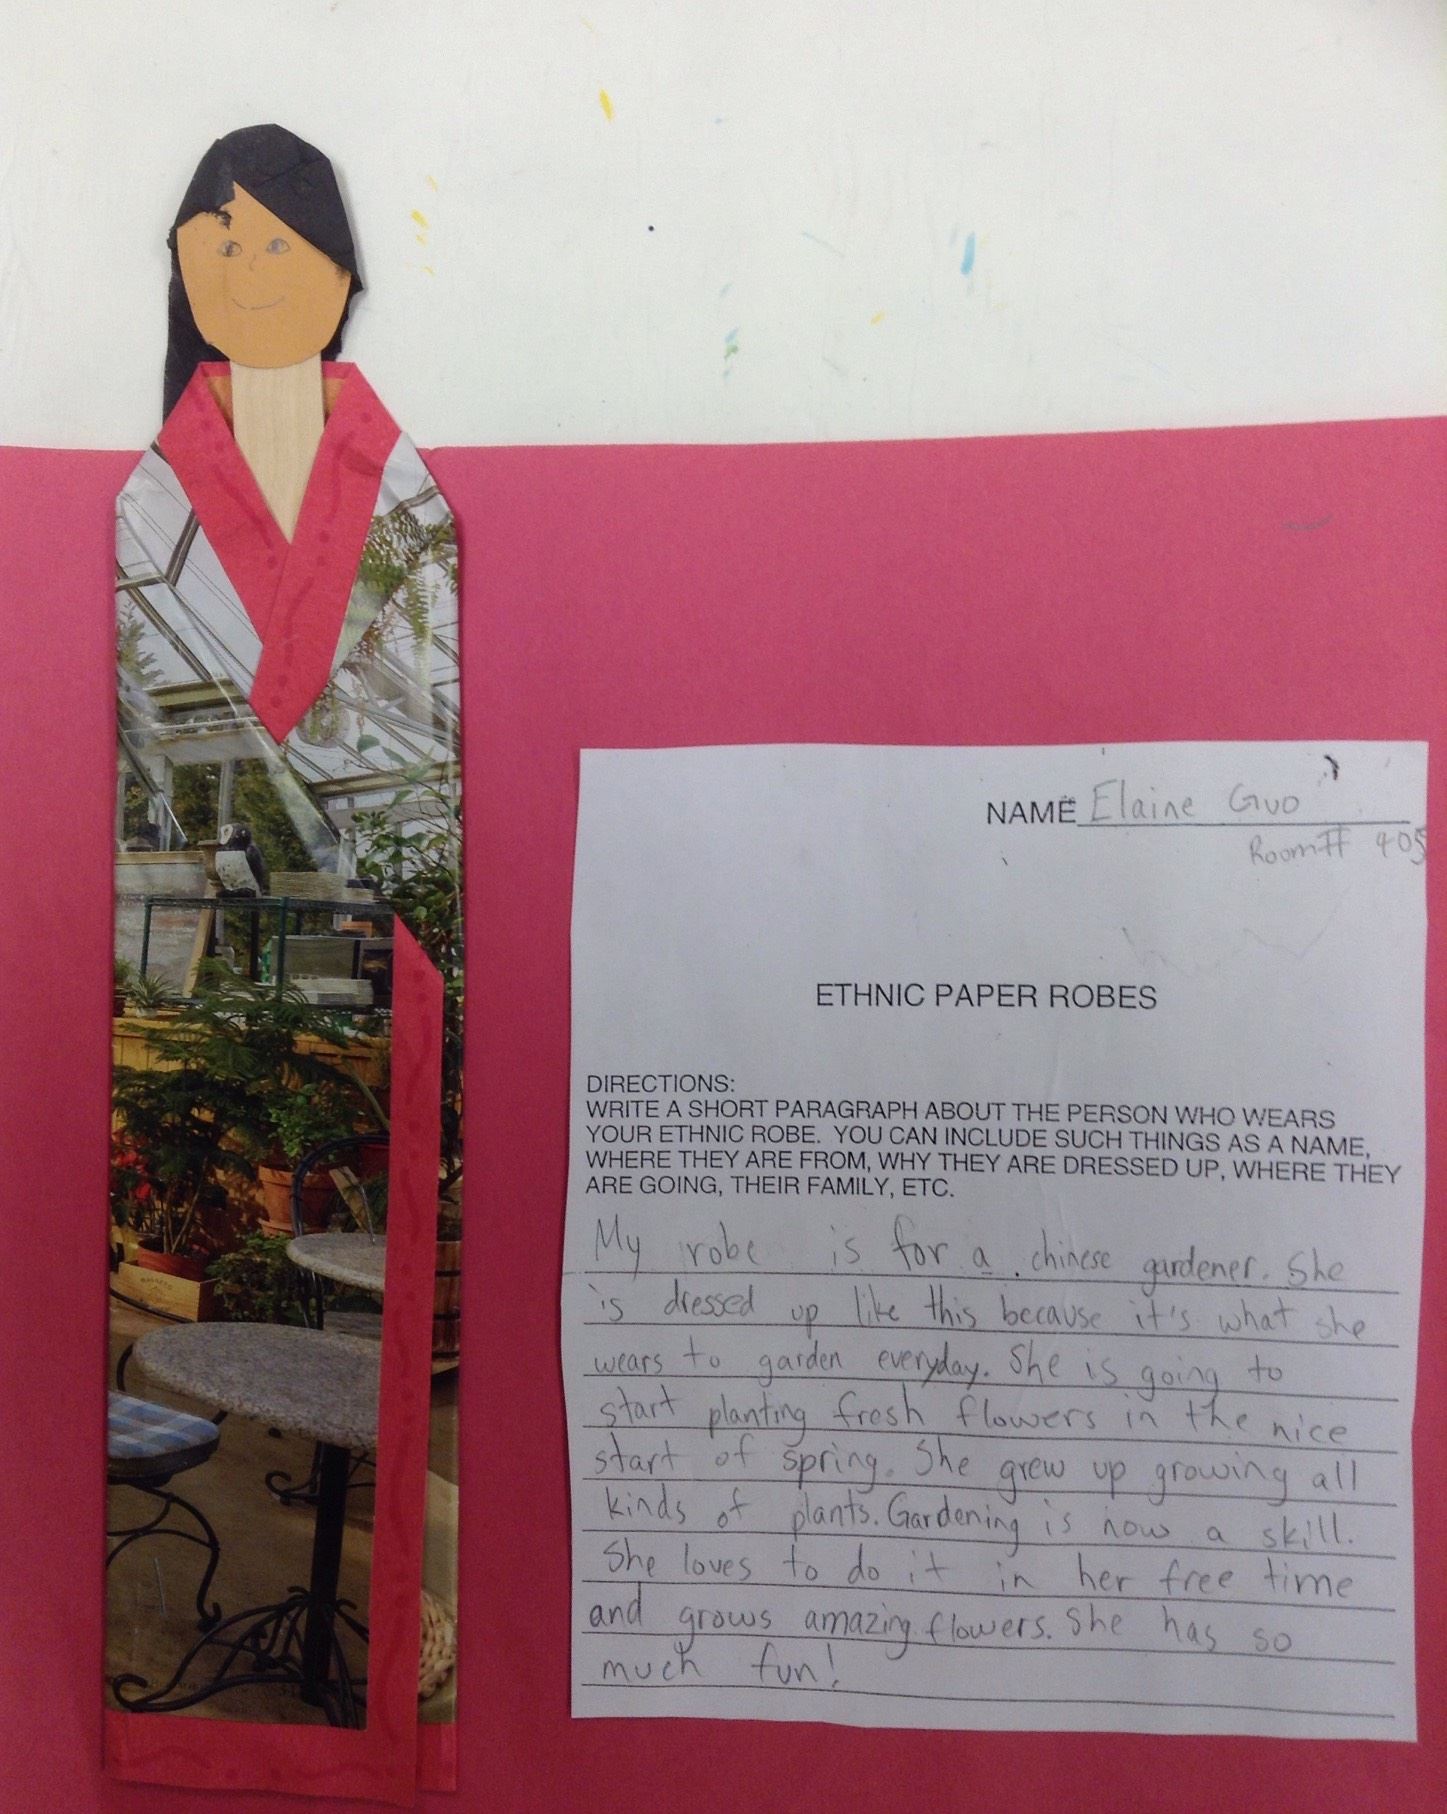 NAME Elaine Guo
Room# 405
ETHNIC PAPER ROBES
DIRECTIONS:
WRITE A SHORT PARAGRAPH ABOUT THE PERSON WHO WEARS
YOUR ETHNIC ROBE. YOU CAN INCLUDE SUCH THINGS AS A NAME,
WHERE THEY ARE FROM, WHY THEY ARE DRESSED UP, WHERE THEY
ARE GOING, THEIR FAMILY, ETC.
My robe is for a chinese gardener. She
is dressed up like this because it's what she
wears to garden everyday. She is going to
start planting fresh flowers in the nice
start of spring. She grew up growing all
kinds of plants. Gardening is now a skill.
She loves to do it in her free time
and grows amazing flowers. She has so
much fun!